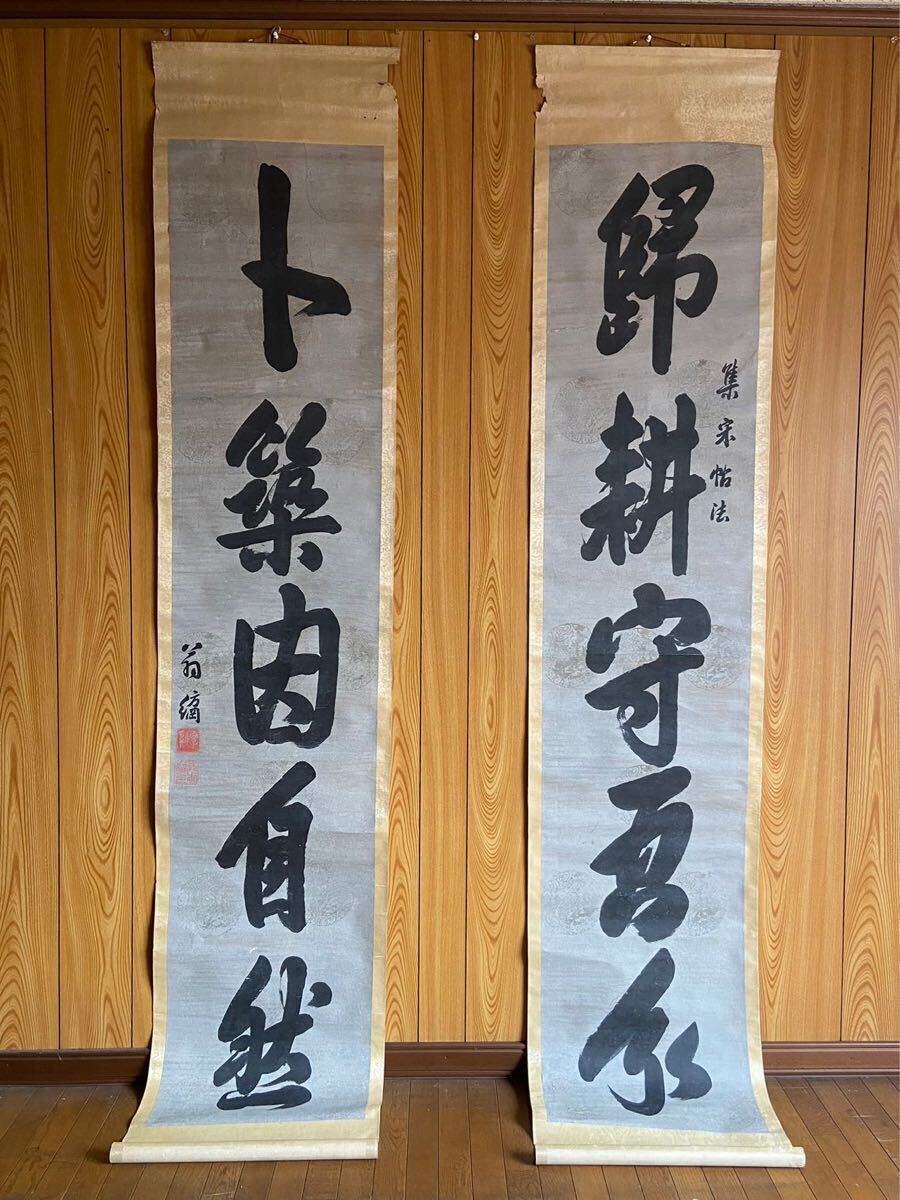 歸耕守吾分
集宋帖法
卜築因自然
翁縞